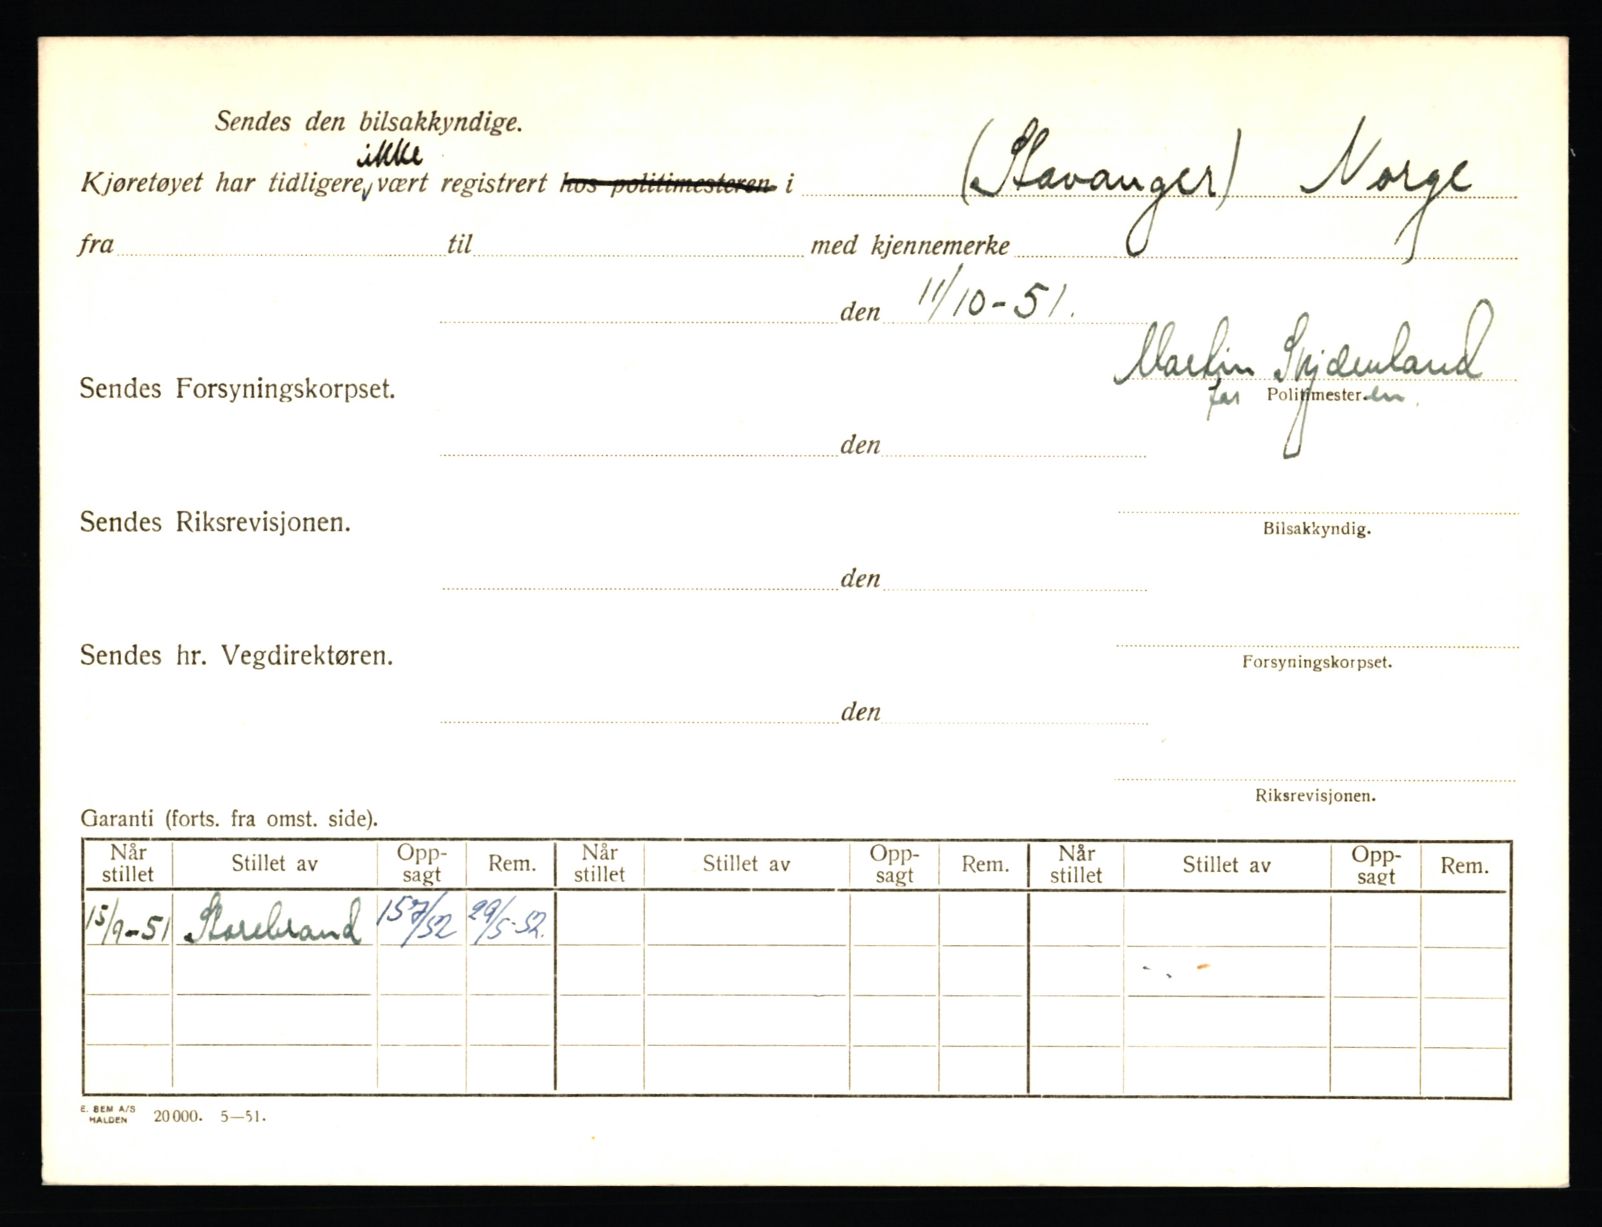 Sendes den bilsakkyndige.
ikke
Kjøretøyet har tidligere vært registrert hos politimesteren i (Stavanger) Norge
fra til med kjennemerke
den 11/10-51.
Martin
Sendes Forsyningskorpset.
for Politimester.en.
den
Sendes Riksrevisjonen.
Bilsakkyndig.
den
Sendes hr. Vegdirektøren.
Forsyningskorpset.
den
Riksrevisjonen.
Garanti (forts. fra omst. side).
Når stillet Stillet av Opp-sagt Rem. Når stillet Stillet av Opp-sagt Rem. Når stillet Stillet av Opp-sagt Rem.
15/9-51 Storebrand 157/52 29/5-52.
E. BEM A/S
HALDEN 20000. 5—51.